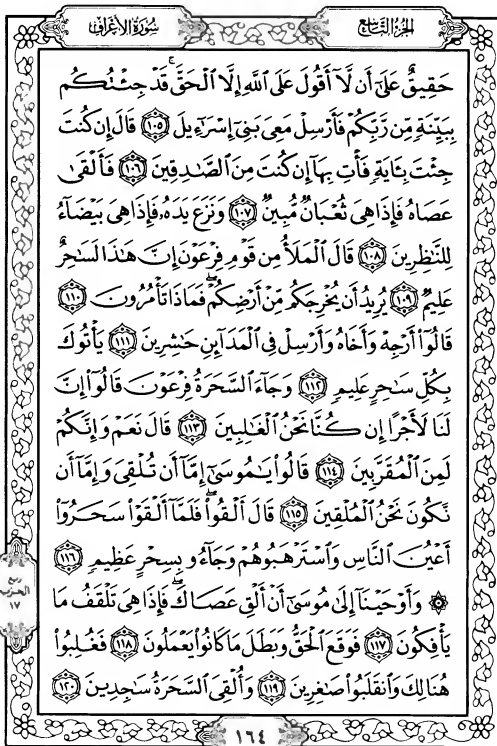 سُورَةُ الأَعْرَاف
الجُزْءُ التَّاسِعُ
حَقِيقٌ عَلَىٰٓ أَن لَّآ أَقُولَ عَلَى ٱللَّهِ إِلَّا ٱلْحَقَّۚ قَدْ جِئْتُكُم
بِبَيِّنَةٍ مِّن رَّبِّكُمْ فَأَرْسِلْ مَعِىَ بَنِىٓ إِسْرَٰٓءِيلَ ۝١٠٥ قَالَ إِن كُنتَ
جِئْتَ بِـَٔايَةٍ فَأْتِ بِهَآ إِن كُنتَ مِنَ ٱلصَّٰدِقِينَ ۝١٠٦ فَأَلْقَىٰ
عَصَاهُ فَإِذَا هِىَ ثُعْبَانٌ مُّبِينٌ ۝١٠٧ وَنَزَعَ يَدَهُۥ فَإِذَا هِىَ بَيْضَآءُ
لِلنَّٰظِرِينَ ۝١٠٨ قَالَ ٱلْمَلَأُ مِن قَوْمِ فِرْعَوْنَ إِنَّ هَٰذَا لَسَٰحِرٌ
عَلِيمٌ ۝١٠٩ يُرِيدُ أَن يُخْرِجَكُم مِّنْ أَرْضِكُمْۖ فَمَاذَا تَأْمُرُونَ ۝١١٠
قَالُوٓا۟ أَرْجِهْ وَأَخَاهُ وَأَرْسِلْ فِى ٱلْمَدَآئِنِ حَٰشِرِينَ ۝١١١ يَأْتُوكَ
بِكُلِّ سَٰحِرٍ عَلِيمٍ ۝١١٢ وَجَآءَ ٱلسَّحَرَةُ فِرْعَوْنَ قَالُوٓا۟ إِنَّ
لَنَا لَأَجْرًا إِن كُنَّا نَحْنُ ٱلْغَٰلِبِينَ ۝١١٣ قَالَ نَعَمْ وَإِنَّكُمْ
لَمِنَ ٱلْمُقَرَّبِينَ ۝١١٤ قَالُوا۟ يَٰمُوسَىٰٓ إِمَّآ أَن تُلْقِىَ وَإِمَّآ أَن
نَّكُونَ نَحْنُ ٱلْمُلْقِينَ ۝١١٥ قَالَ أَلْقُوا۟ۖ فَلَمَّآ أَلْقَوْا۟ سَحَرُوٓا۟
أَعْيُنَ ٱلنَّاسِ وَٱسْتَرْهَبُوهُمْ وَجَآءُو بِسِحْرٍ عَظِيمٍ ۝١١٦
۞ وَأَوْحَيْنَآ إِلَىٰ مُوسَىٰٓ أَنْ أَلْقِ عَصَاكَۖ فَإِذَا هِىَ تَلْقَفُ مَا
يَأْفِكُونَ ۝١١٧ فَوَقَعَ ٱلْحَقُّ وَبَطَلَ مَا كَانُوا۟ يَعْمَلُونَ ۝١١٨ فَغُلِبُوا۟
هُنَالِكَ وَٱنقَلَبُوا۟ صَٰغِرِينَ ۝١١٩ وَأُلْقِىَ ٱلسَّحَرَةُ سَٰجِدِينَ ۝١٢٠
ربع
الحزب
١٧
١٦٤